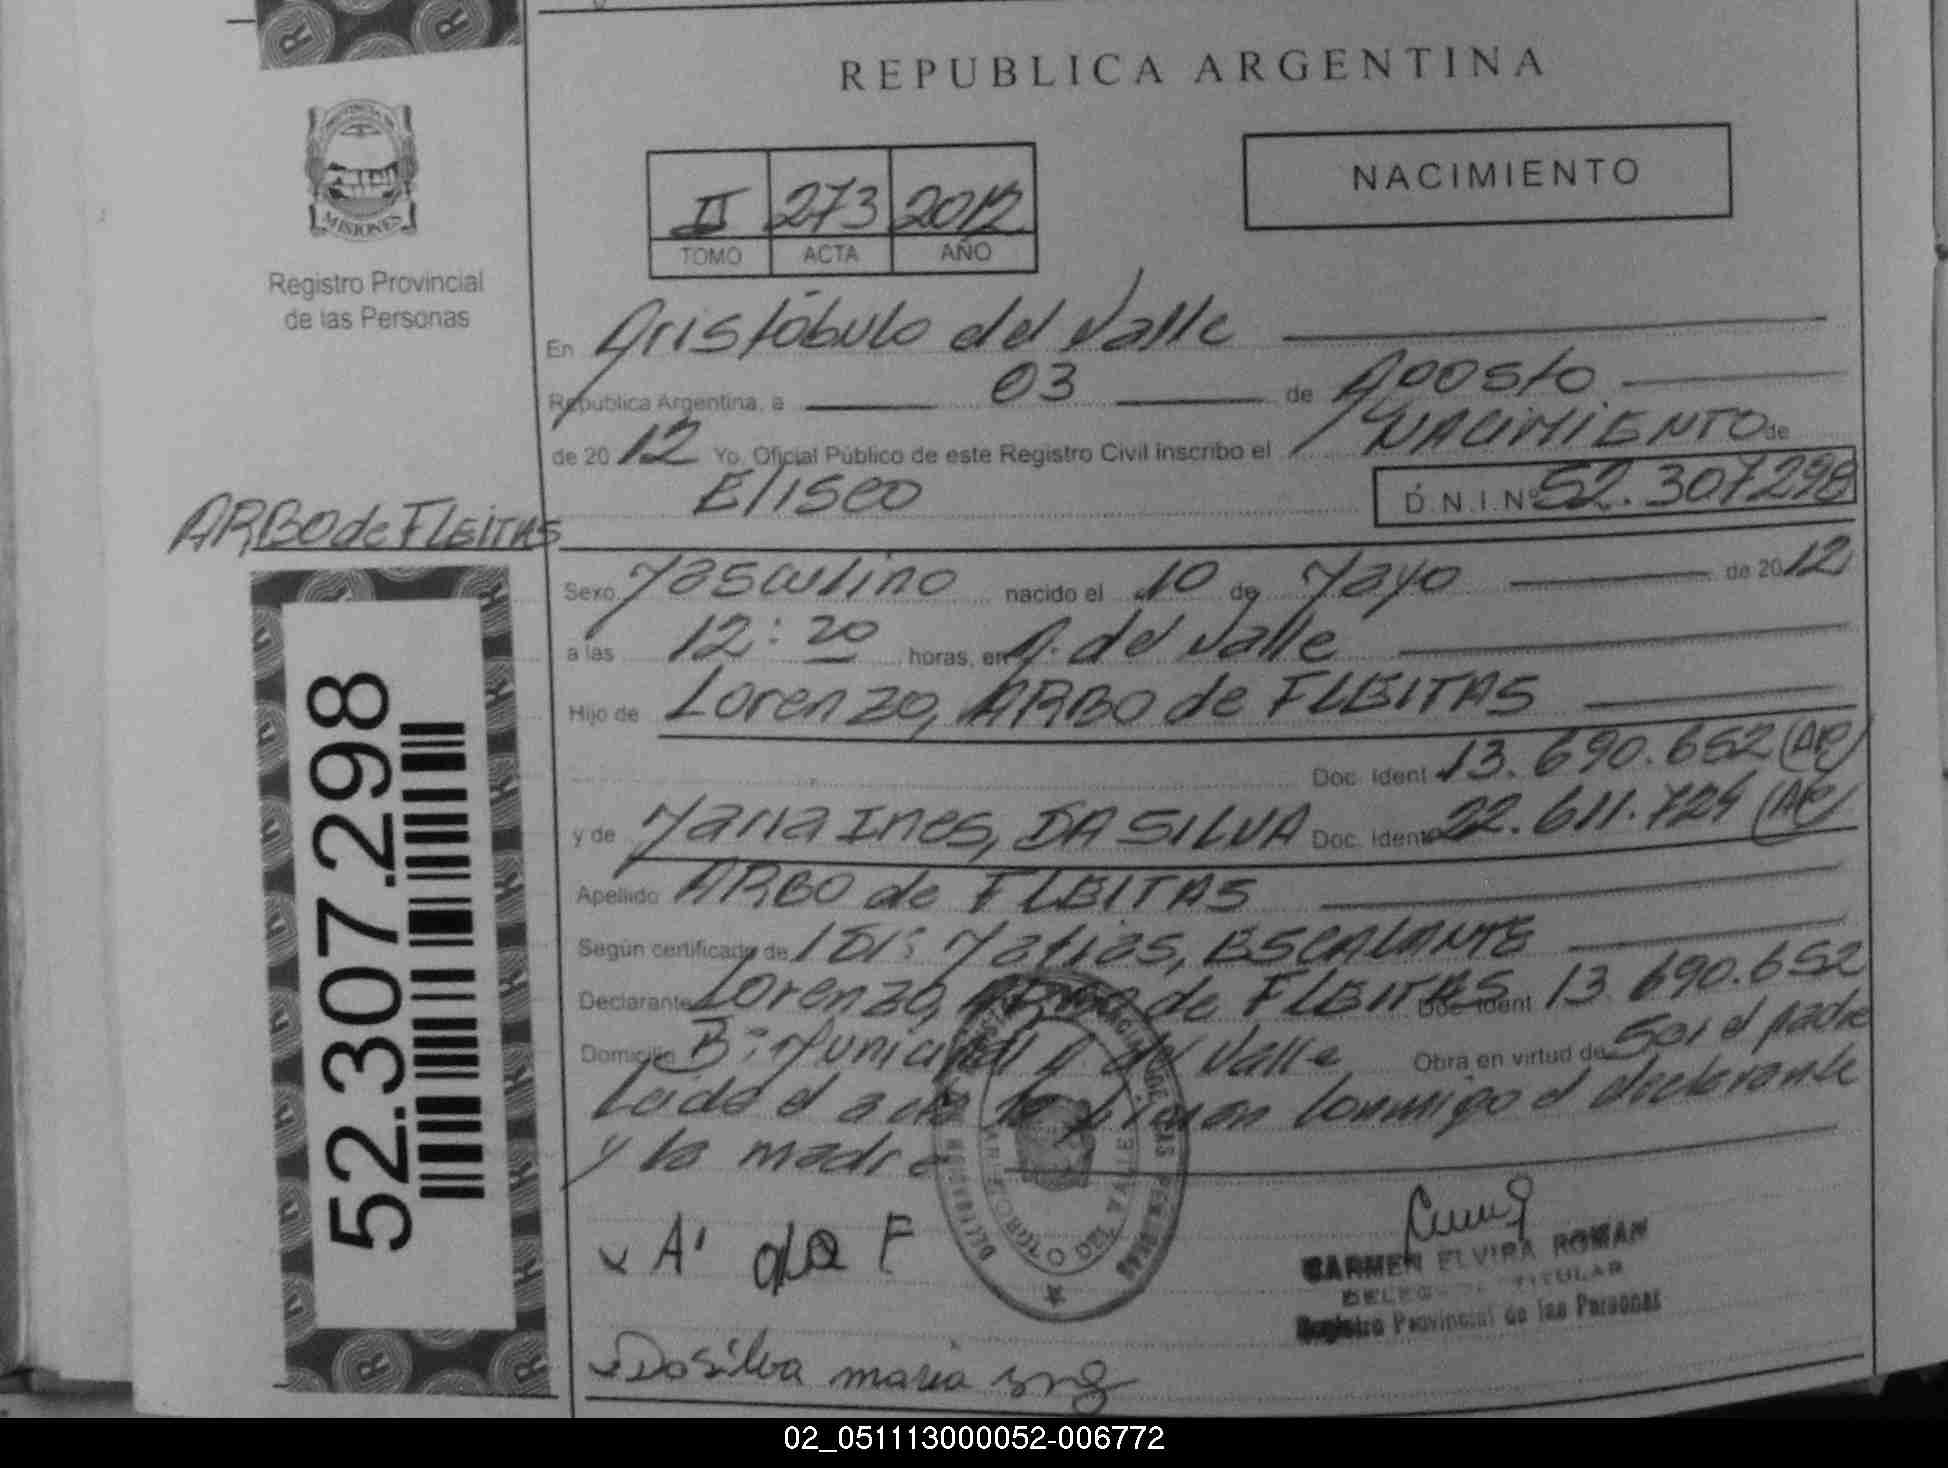 REPUBLICA ARGENTINA
MISIONES
Registro Provincial
de las Personas
II 273 2012
TOMO ACTA AÑO
NACIMIENTO
En Aristóbulo del Valle
Republica Argentina, a 03 de Agosto
de 2012 Yo, Oficial Público de este Registro Civil inscribo el NACIMIENTO de
Eliseo D.N.I.Nº 52.307298
ARBO de FLEITAS
Sexo Masculino nacido el 10 de Mayo de 2012
a las 12:20 horas, en A. del Valle
Hijo de Lorenzo, ARBO de FLEITAS
Doc. Ident 13.690.652 (AR)
y de Maria Ines, DA SILVA Doc. Ident 22.611.724 (AR)
Apellido ARBO de FLEITAS
Según certificado de Matias, ESCALANTE
Declarante Lorenzo, ARBO de FLEITAS Doc. Ident 13.690.652
Domicilio Bº Municipal A. del Valle Obra en virtud de Ser el padre
Leida el acta la firman conmigo el declarante
y la madre
ARISTOBULO DEL VALLE
A' da F
CARMEN ELVIRA ROMAN
TITULAR
Registro Provincial de las Personas
Dasilva maria
52.307.298
02_051113000052-006772